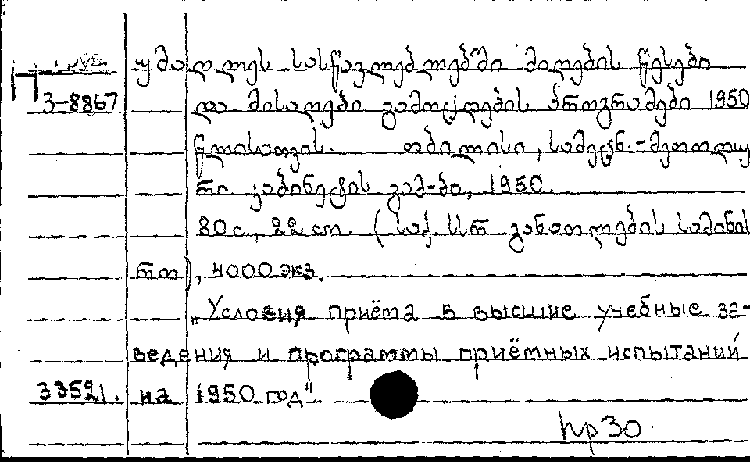 უმაღლეს სასწავლებლებში მიღების წესები
П
3-8867 და მისაღები გამოცდების პროგრამები 1950
წლისათვის. თბილისი, სამეცნ.-მეთოდუ
რი კაბინეტის გამ-ბა, 1950.
80 с, 22 cm. (საქ. სსრ განათლების სამინის
ტრო), 4000 экз.
„Условия приёма в высшие учебные за-
ведения и программы приёмных испытаний
33521. на 1950 год"